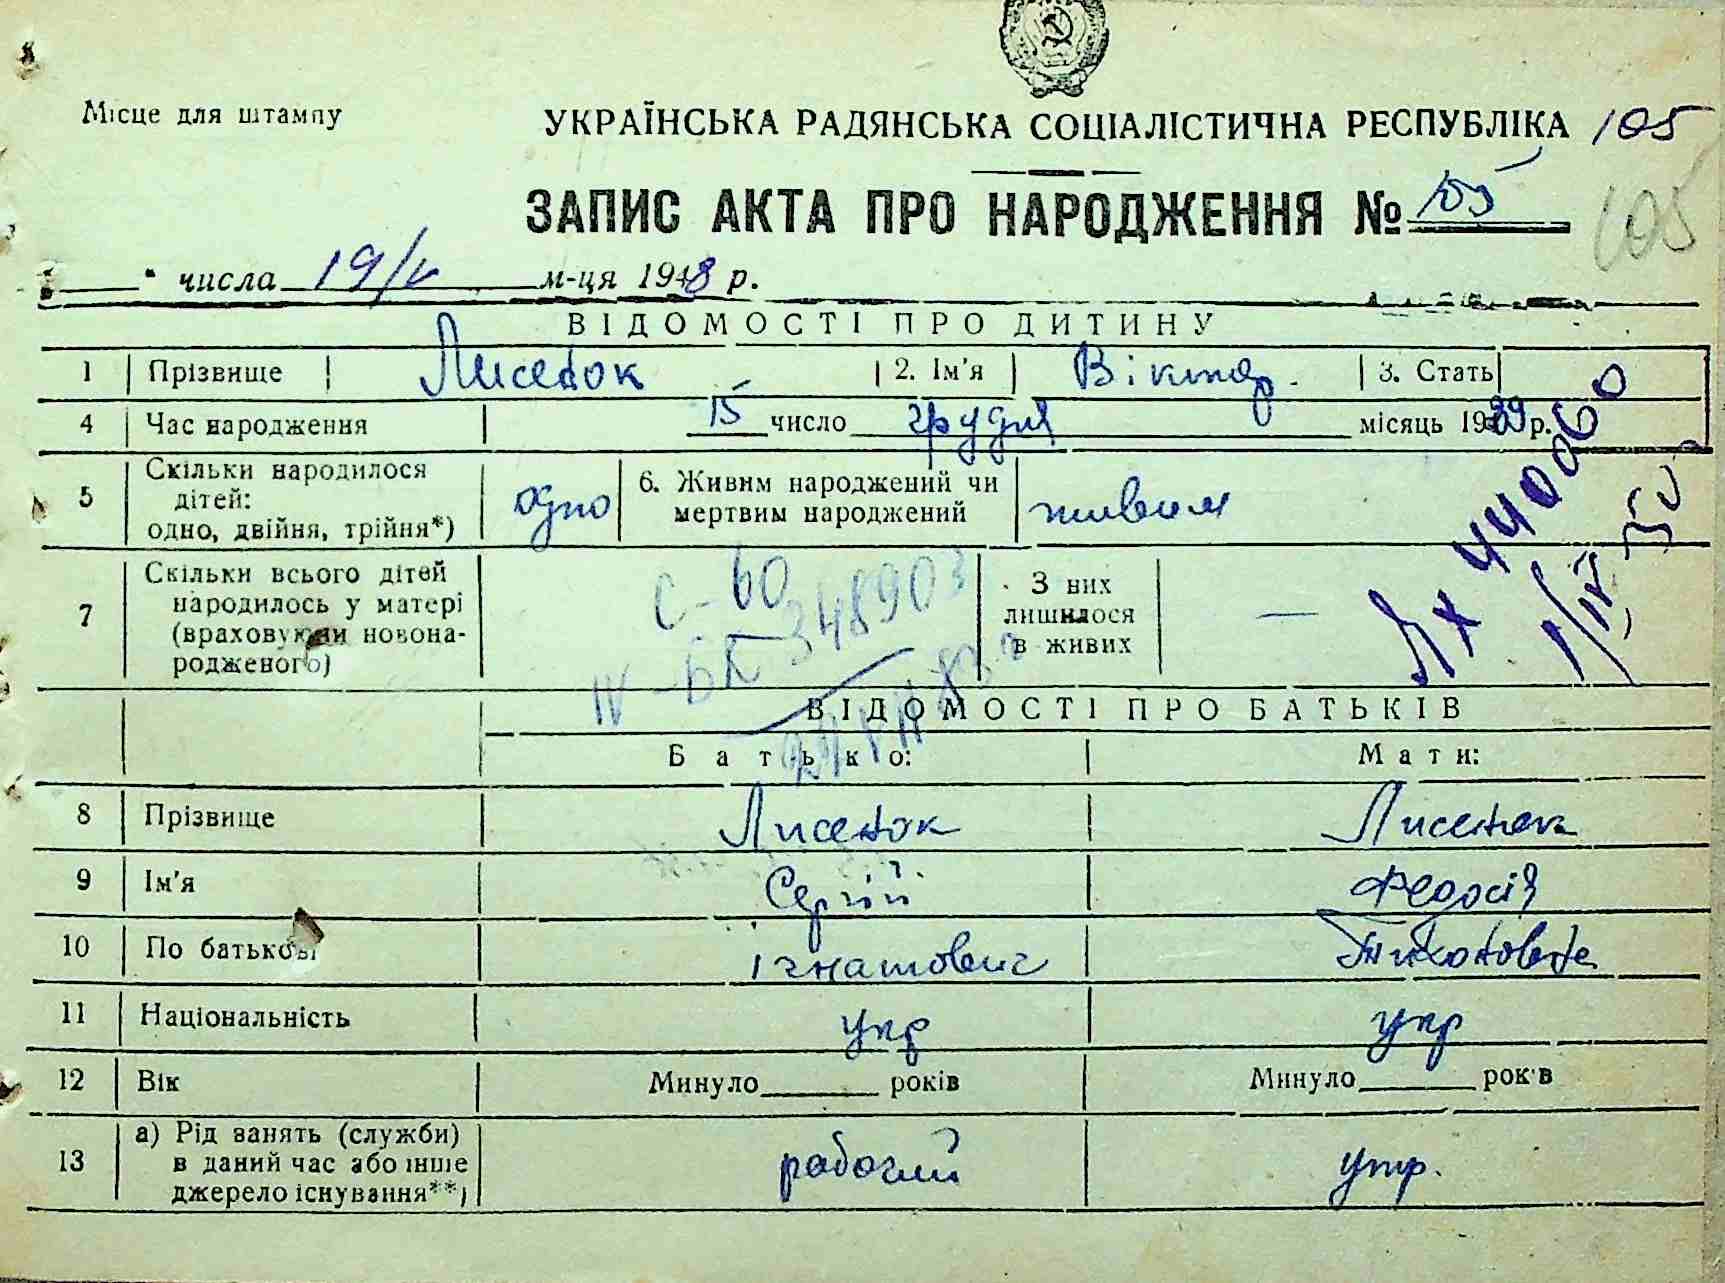 Місце для штампу
УКРАЇНСЬКА РАДЯНСЬКА СОЦІАЛІСТИЧНА РЕСПУБЛІКА 105
ЗАПИС АКТА ПРО НАРОДЖЕННЯ № 105
105
" числа 19/V м-ця 1948 р.
ВІДОМОСТІ ПРО ДИТИНУ
1 Прізвище Лисенок 2. Ім'я Віктор. 3. Стать
4 Час народження 15 число грудня місяць 1939 р.
5 Скільки народилося дітей: одно, двійня, трійня*) одно 6. Живим народжений чи мертвим народжений живим
7 Скільки всього дітей народилось у матері (враховуючи новонародженого) З них лишилося в живих —
с-60
IV-БК 348903
ВІДОМОСТІ ПРО БАТЬКІВ
Батько: Мати:
8 Прізвище Лисенок Лисенок
9 Ім'я Сергій Феодосія
10 По батькові Ігнатович Тихоновна
11 Національність укр укр
12 Вік Минуло років Минуло років
13 а) Рід занять (служби) в даний час або інше джерело існування**) рабочий утр.